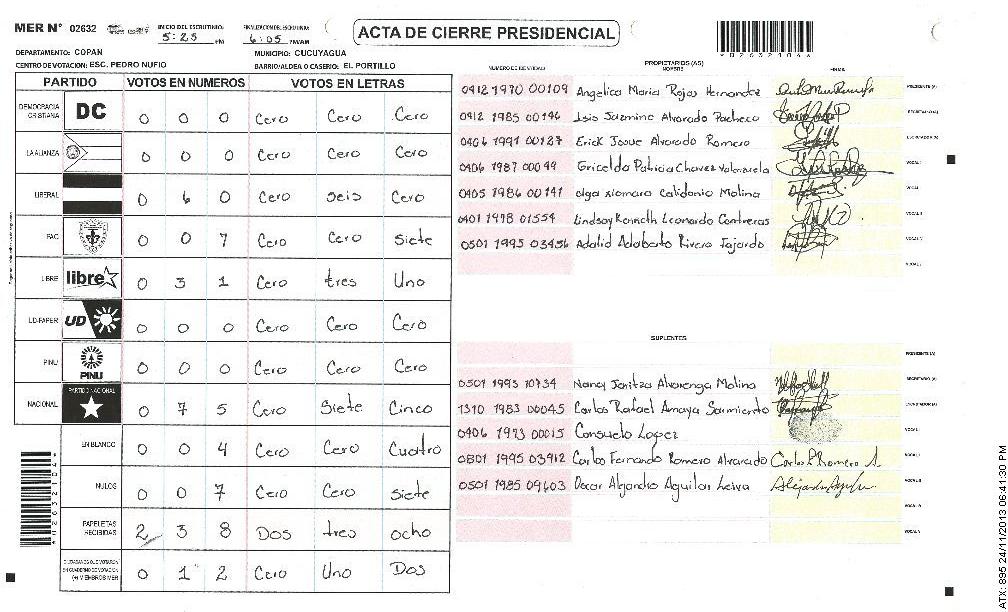 MER Nº 02632
INICIO DEL ESCRUTINIO 5:25 PM
FINALIZACION DEL ESCRUTINIO 6:05 PM/AM
ACTA DE CIERRE PRESIDENCIAL
DEPARTAMENTO: COPAN
MUNICIPIO: CUCUYAGUA
CENTRO DE VOTACION: ESC. PEDRO NUFIO
BARRIO/ALDEA O CASERIO: EL PORTILLO
PARTIDO VOTOS EN NUMEROS VOTOS EN LETRAS
DEMOCRACIA CRISTIANA DC 0 0 0 Cero Cero Cero
LA ALIANZA 0 0 0 Cero Cero Cero
LIBERAL 0 6 0 Cero seis Cero
PAC 0 0 7 Cero Cero siete
LIBRE libre 0 3 1 Cero tres Uno
UD-FAPER UD 0 0 0 Cero Cero Cero
PINU PINU 0 0 0 Cero Cero Cero
NACIONAL PARTIDO NACIONAL 0 7 5 Cero Siete Cinco
EN BLANCO 0 0 4 Cero Cero Cuatro
NULOS 0 0 7 Cero Cero siete
PAPELETAS RECIBIDAS 2 3 8 Dos tres ocho
CIUDADANOS QUE VOTARON EN CUADERNO DE VOTACION (+) MIEMBROS MER 0 1 2 Cero Uno Dos
NUMERO DE IDENTIDAD PROPIETARIOS (AS) NOMBRE FIRMA
0412 1970 00109 Angelica Maria Rojas Hernandez PRESIDENTE (A)
0412 1985 00146 Isis Jazmine Alvarado Pacheco SECRETARIO (A)
0406 1991 00127 Erick Josue Alvarado Romero ESCRUTADOR (A)
0406 1987 00099 Gricelda Patricia Chavez Valenzuela VOCAL I
0405 1986 00141 olga xiomara Calidonio Molina VOCAL
0401 1978 01554 Lindsay Kenneth Leonardo Contreras VOCAL
0501 1995 03456 Adalid Adalberto Rivera Fajardo VOCAL
VOCAL
SUPLENTES
PRESIDENTE (A)
0501 1993 10734 Nancy Janitza Alvarenga Molina SECRETARIO (A)
1310 1983 00045 Carlos Rafael Amaya Sarmiento ESCRUTADOR (A)
0406 1973 00015 Consuelo Lopez VOCAL
0801 1995 03912 Carlos Fernando Romero Alvarado Carlos F Romero A VOCAL
0501 1985 09603 Oscar Alejandro Aguilar Leiva VOCAL
VOCAL
VOCAL
ATX: 895 24/11/2013 06:41:30 PM